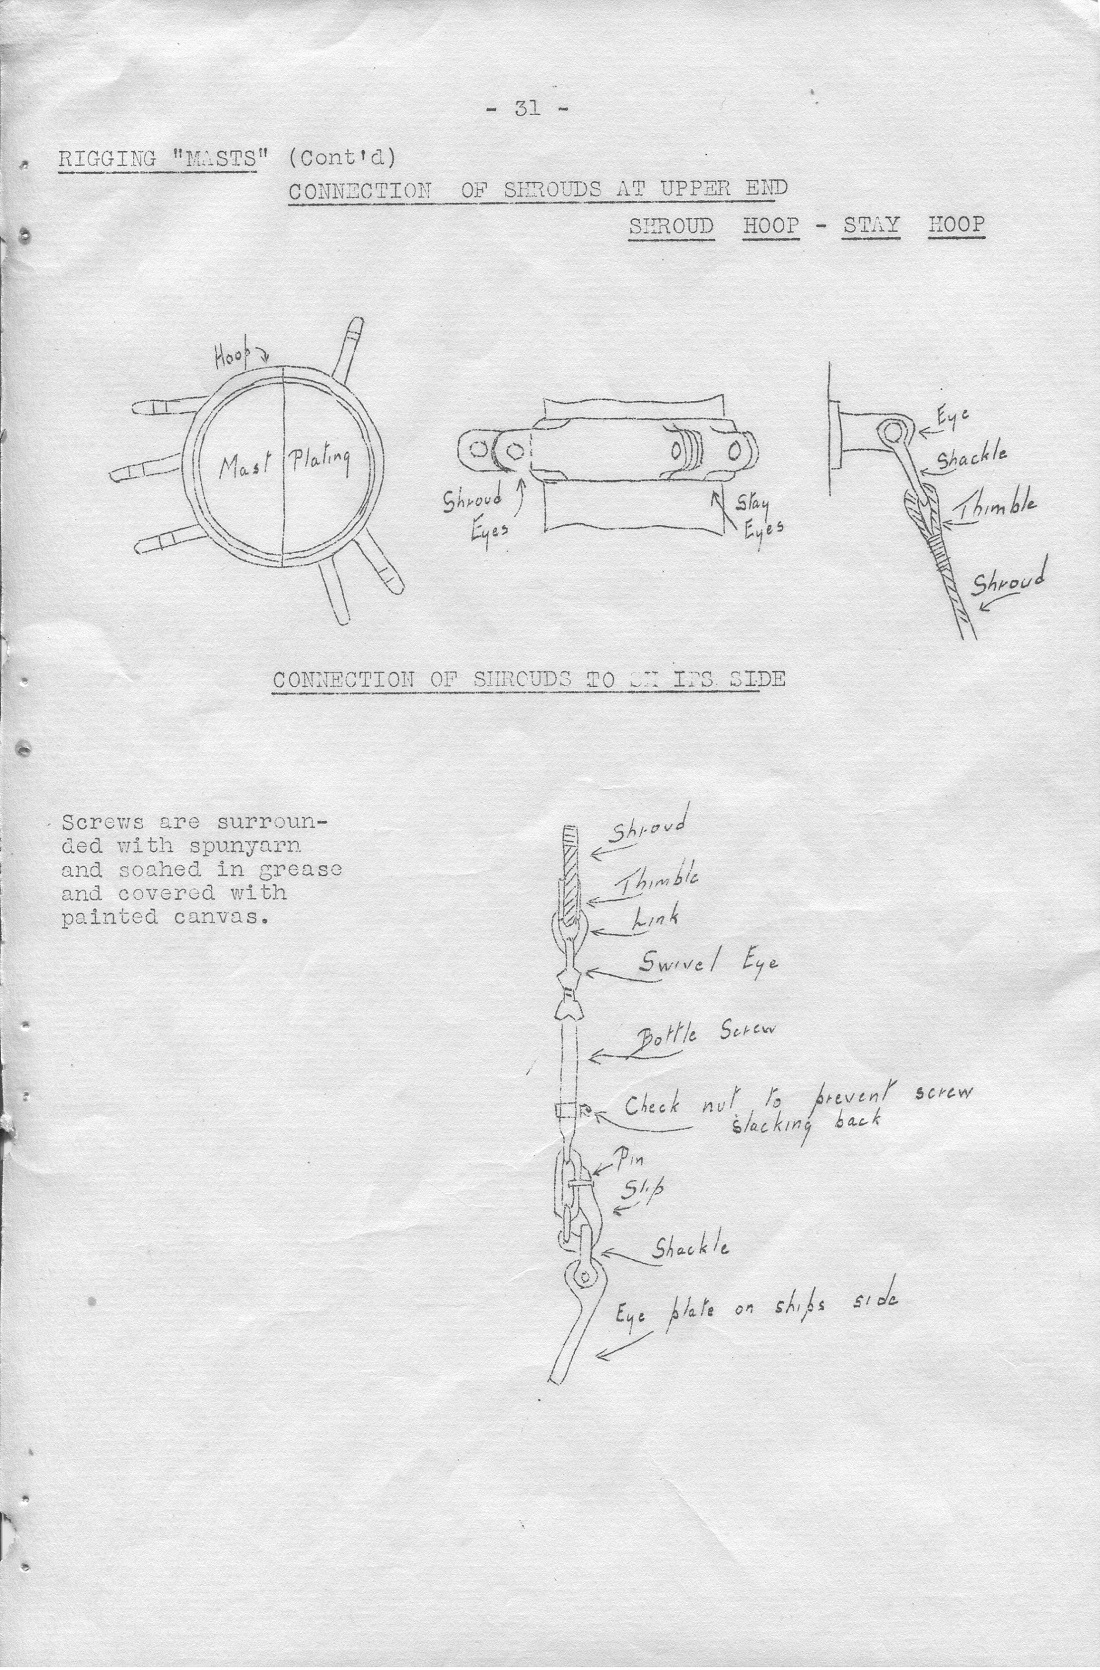 - 31 -
RIGGING "MASTS" (Cont'd)
CONNECTION OF SHROUDS AT UPPER END
SHROUD HOOP - STAY HOOP
Hoop
Mast Plating
Shroud
Eyes
Stay
Eyes
Eye
Shackle
Thimble
Shroud
CONNECTION OF SHROUDS TO SH IPS SIDE
Screws are surroun-
ded with spunyarn
and soahed in grease
and covered with
painted canvas.
Shroud
Thimble
Link
Swivel Eye
Bottle Screw
Check nut to prevent screw
slacking back
Pin
Slip
Shackle
Eye plate on ships side